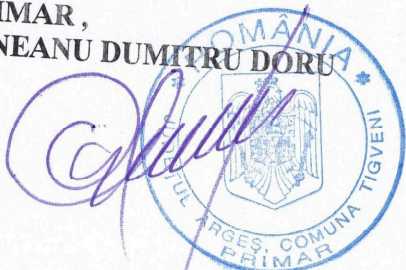 IMAR ,
NEANU DUMITRU DORU
* ROMÂNIA *
JUDEȚUL ARGEȘ, COMUNA TIGVENI
PRIMAR